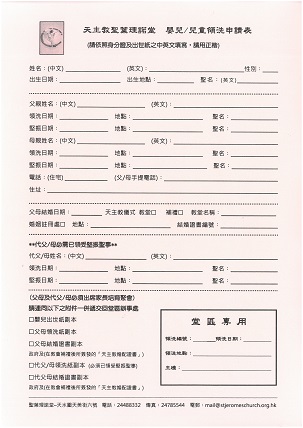 天主教聖葉理諾堂　嬰兒/兒童領洗申請表
(請依照身分證及出世紙之中英文填寫，請用正楷)
姓名：(中文)　(英文)　性別：
出生日期：　出生地點：　聖名：(英文)
父親姓名：(中文)　(英文)
領洗日期：　地點：　聖名：
堅振日期：　地點：　聖名：
母親姓名：(中文)　(英文)
領洗日期：　地點：　聖名：
堅振日期：　地點：　聖名：
電話：(住宅)　(父/母手提電話)：
住址：
父母結婚日期：　天主教儀式 教堂□　補禮□　教堂名稱：
婚姻註冊處□ 地點：　結婚證書編號：
**代父/母必需已領受堅振聖事**
代父/母姓名：(中文)　(英文)
領洗日期：　地點：　聖名：
堅振日期：　地點：　聖名：
(父母及代父/母必須出席家長培育聚會)
請連同以下之附件一併遞交回堂區辦事處
□嬰兒出世紙副本
□父母領洗紙副本
□父母結婚證書副本
政府及(在教會補禮後所簽發的「天主教婚配證書」)
□代父/母領洗紙副本 (必須已領受堅振聖事)
□代父母結婚證書副本
政府及(在教會補禮後所簽發的「天主教婚配證書」)
堂 區 專 用
領洗編號：　領洗日期：
領洗地點：
主禮：
聖葉理諾堂-天水圍天美街六號　電話：24488332　傳真：24785544　電郵：mail@stjeromeschurch.org.hk